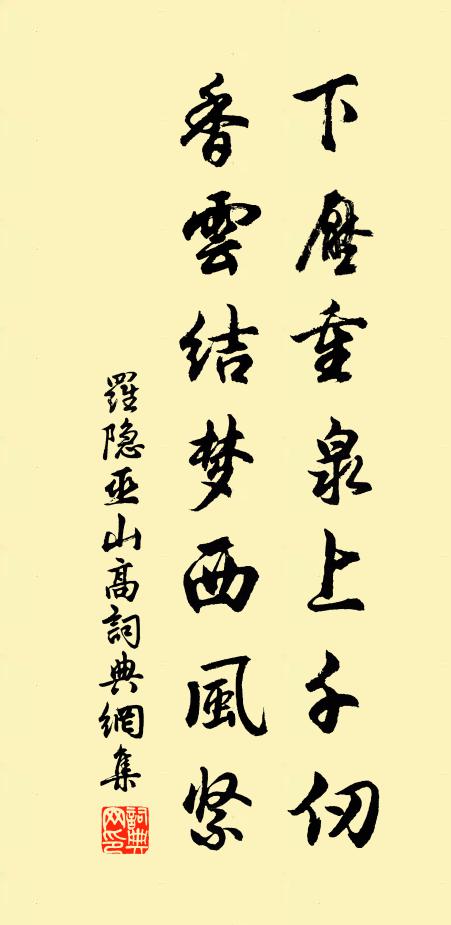 下壓重泉上千仞
香雲結梦西風緊
羅隐巫山高詞典網集
詞典網印